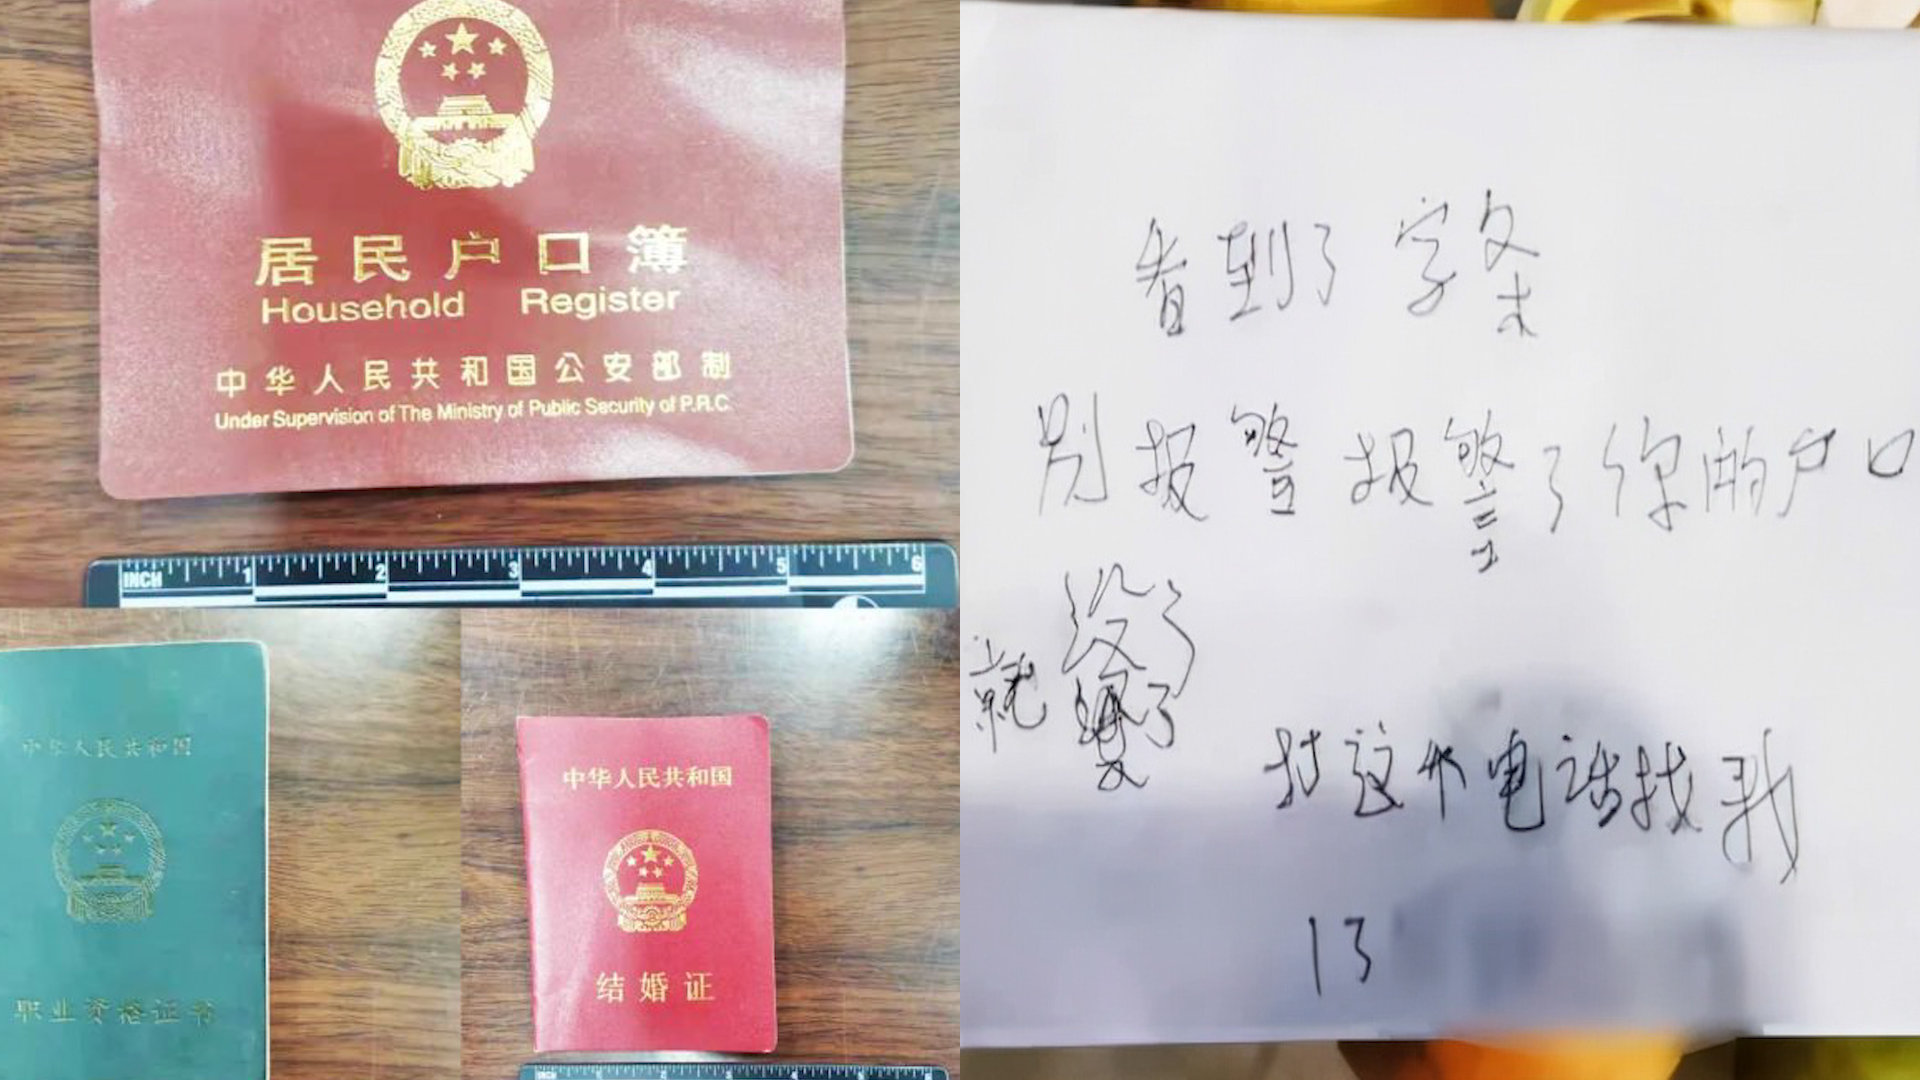 居民户口簿
Household Register
中华人民共和国公安部制
Under Supervision of The Ministry of Public Security of P.R.C.
INCH 1 2 3 4 5 6
中华人民共和国
职业资格证书
中华人民共和国
结婚证
INCH 1 2 3 4 5
看到了字条
别报警报警了你的户口
没了
就 了
打这个电话找我
13